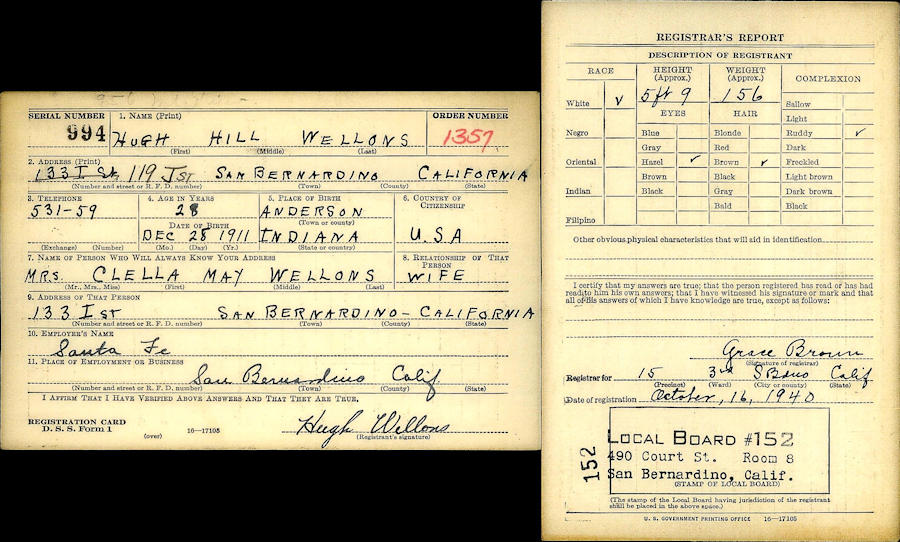 SERIAL NUMBER 1. NAME (Print) ORDER NUMBER
994 HUGH HILL WELLONS 1357
(First) (Middle) (Last)
2. ADDRESS (Print)
133 I St, 119 J ST SAN BERNARDINO CALIFORNIA
(Number and street or R. F. D. number) (Town) (County) (State)
3. TELEPHONE 4. AGE IN YEARS 5. PLACE OF BIRTH 6. COUNTRY OF CITIZENSHIP
531-59 28 ANDERSON
(Town or county)
DATE OF BIRTH
DEC 28 1911 INDIANA U.S.A
(Exchange) (Number) (Mo.) (Day) (Yr.) (State or country)
7. NAME OF PERSON WHO WILL ALWAYS KNOW YOUR ADDRESS 8. RELATIONSHIP OF THAT PERSON
MRS. CLELLA MAY WELLONS WIFE
(Mr., Mrs., Miss) (First) (Middle) (Last)
9. ADDRESS OF THAT PERSON
133 I ST SAN BERNARDINO- CALIFORNIA
(Number and street or R. F. D. number) (Town) (County) (State)
10. EMPLOYER'S NAME
Santa Fe
11. PLACE OF EMPLOYMENT OR BUSINESS
San Bernardino Calif
(Number and street or R. F. D. number) (Town) (County) (State)
I AFFIRM THAT I HAVE VERIFIED ABOVE ANSWERS AND THAT THEY ARE TRUE.
REGISTRATION CARD
D. S. S. Form 1 Hugh Wellons
(over) 16—17105 (Registrant's signature)
REGISTRAR'S REPORT
DESCRIPTION OF REGISTRANT
RACE HEIGHT (Approx.) WEIGHT (Approx.) COMPLEXION
White ✓ 5 ft 9 156 Sallow
EYES HAIR Light
Negro Blue Blonde Ruddy ✓
Gray Red Dark
Oriental Hazel ✓ Brown ✓ Freckled
Brown Black Light brown
Indian Black Gray Dark brown
Bald Black
Filipino
Other obvious physical characteristics that will aid in identification
I certify that my answers are true; that the person registered has read or has had
read to him his own answers; that I have witnessed his signature or mark and that
all of his answers of which I have knowledge are true, except as follows:
Grace Brown
(Signature of registrar)
Registrar for 15 3rd S Bdno Calif
(Precinct) (Ward) (City or county) (State)
Date of registration October, 16, 1940
LOCAL BOARD #152
490 Court St. Room 8
San Bernardino, Calif.
(STAMP OF LOCAL BOARD)
152
(The stamp of the Local Board having jurisdiction of the registrant
shall be placed in the above space.)
U. S. GOVERNMENT PRINTING OFFICE 16—17105